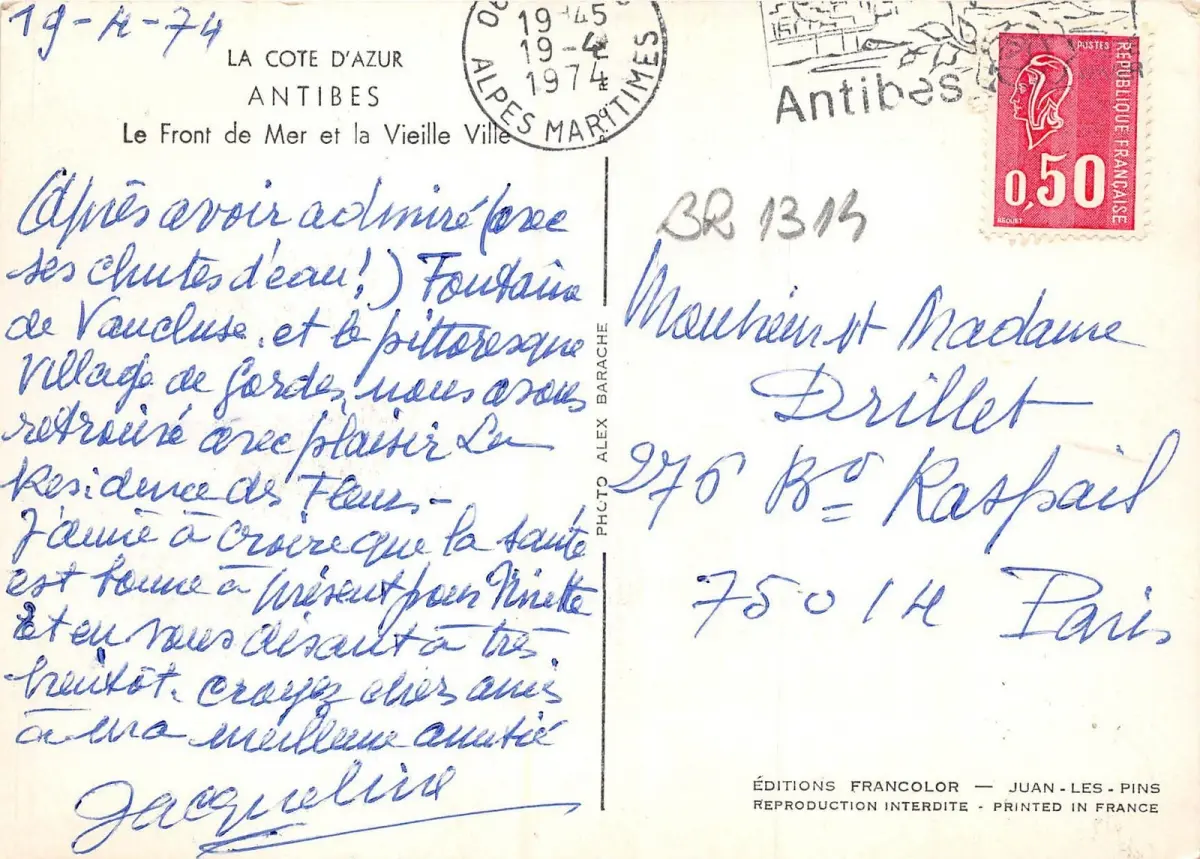 19-4-74
LA COTE D'AZUR
ANTIBES
Le Front de Mer et la Vieille Ville
Après avoir admiré (avec
ses chutes d'eau!) Fontaine
de Vaucluse, et le pittoresque
village de Gordes, nous avons
retrouvé avec plaisir La
Résidence des Fleurs -
J'aime à croire que la santé
est bonne à présent pour Ninette
Et en vous disant à très
bientôt. Croyez chers amis
à ma meilleure amitié
Jacqueline
19 45
19 -4
1974
ALPES MARITIMES
Antibes
POSTES
REPUBLIQUE FRANÇAISE
0,50
BEQUET
BR 1314
Monsieur et Madame
Drillet
276 Bd Raspail
75014 Paris
PHOTO ALEX BARACHE
ÉDITIONS FRANCOLOR — JUAN-LES-PINS
REPRODUCTION INTERDITE - PRINTED IN FRANCE